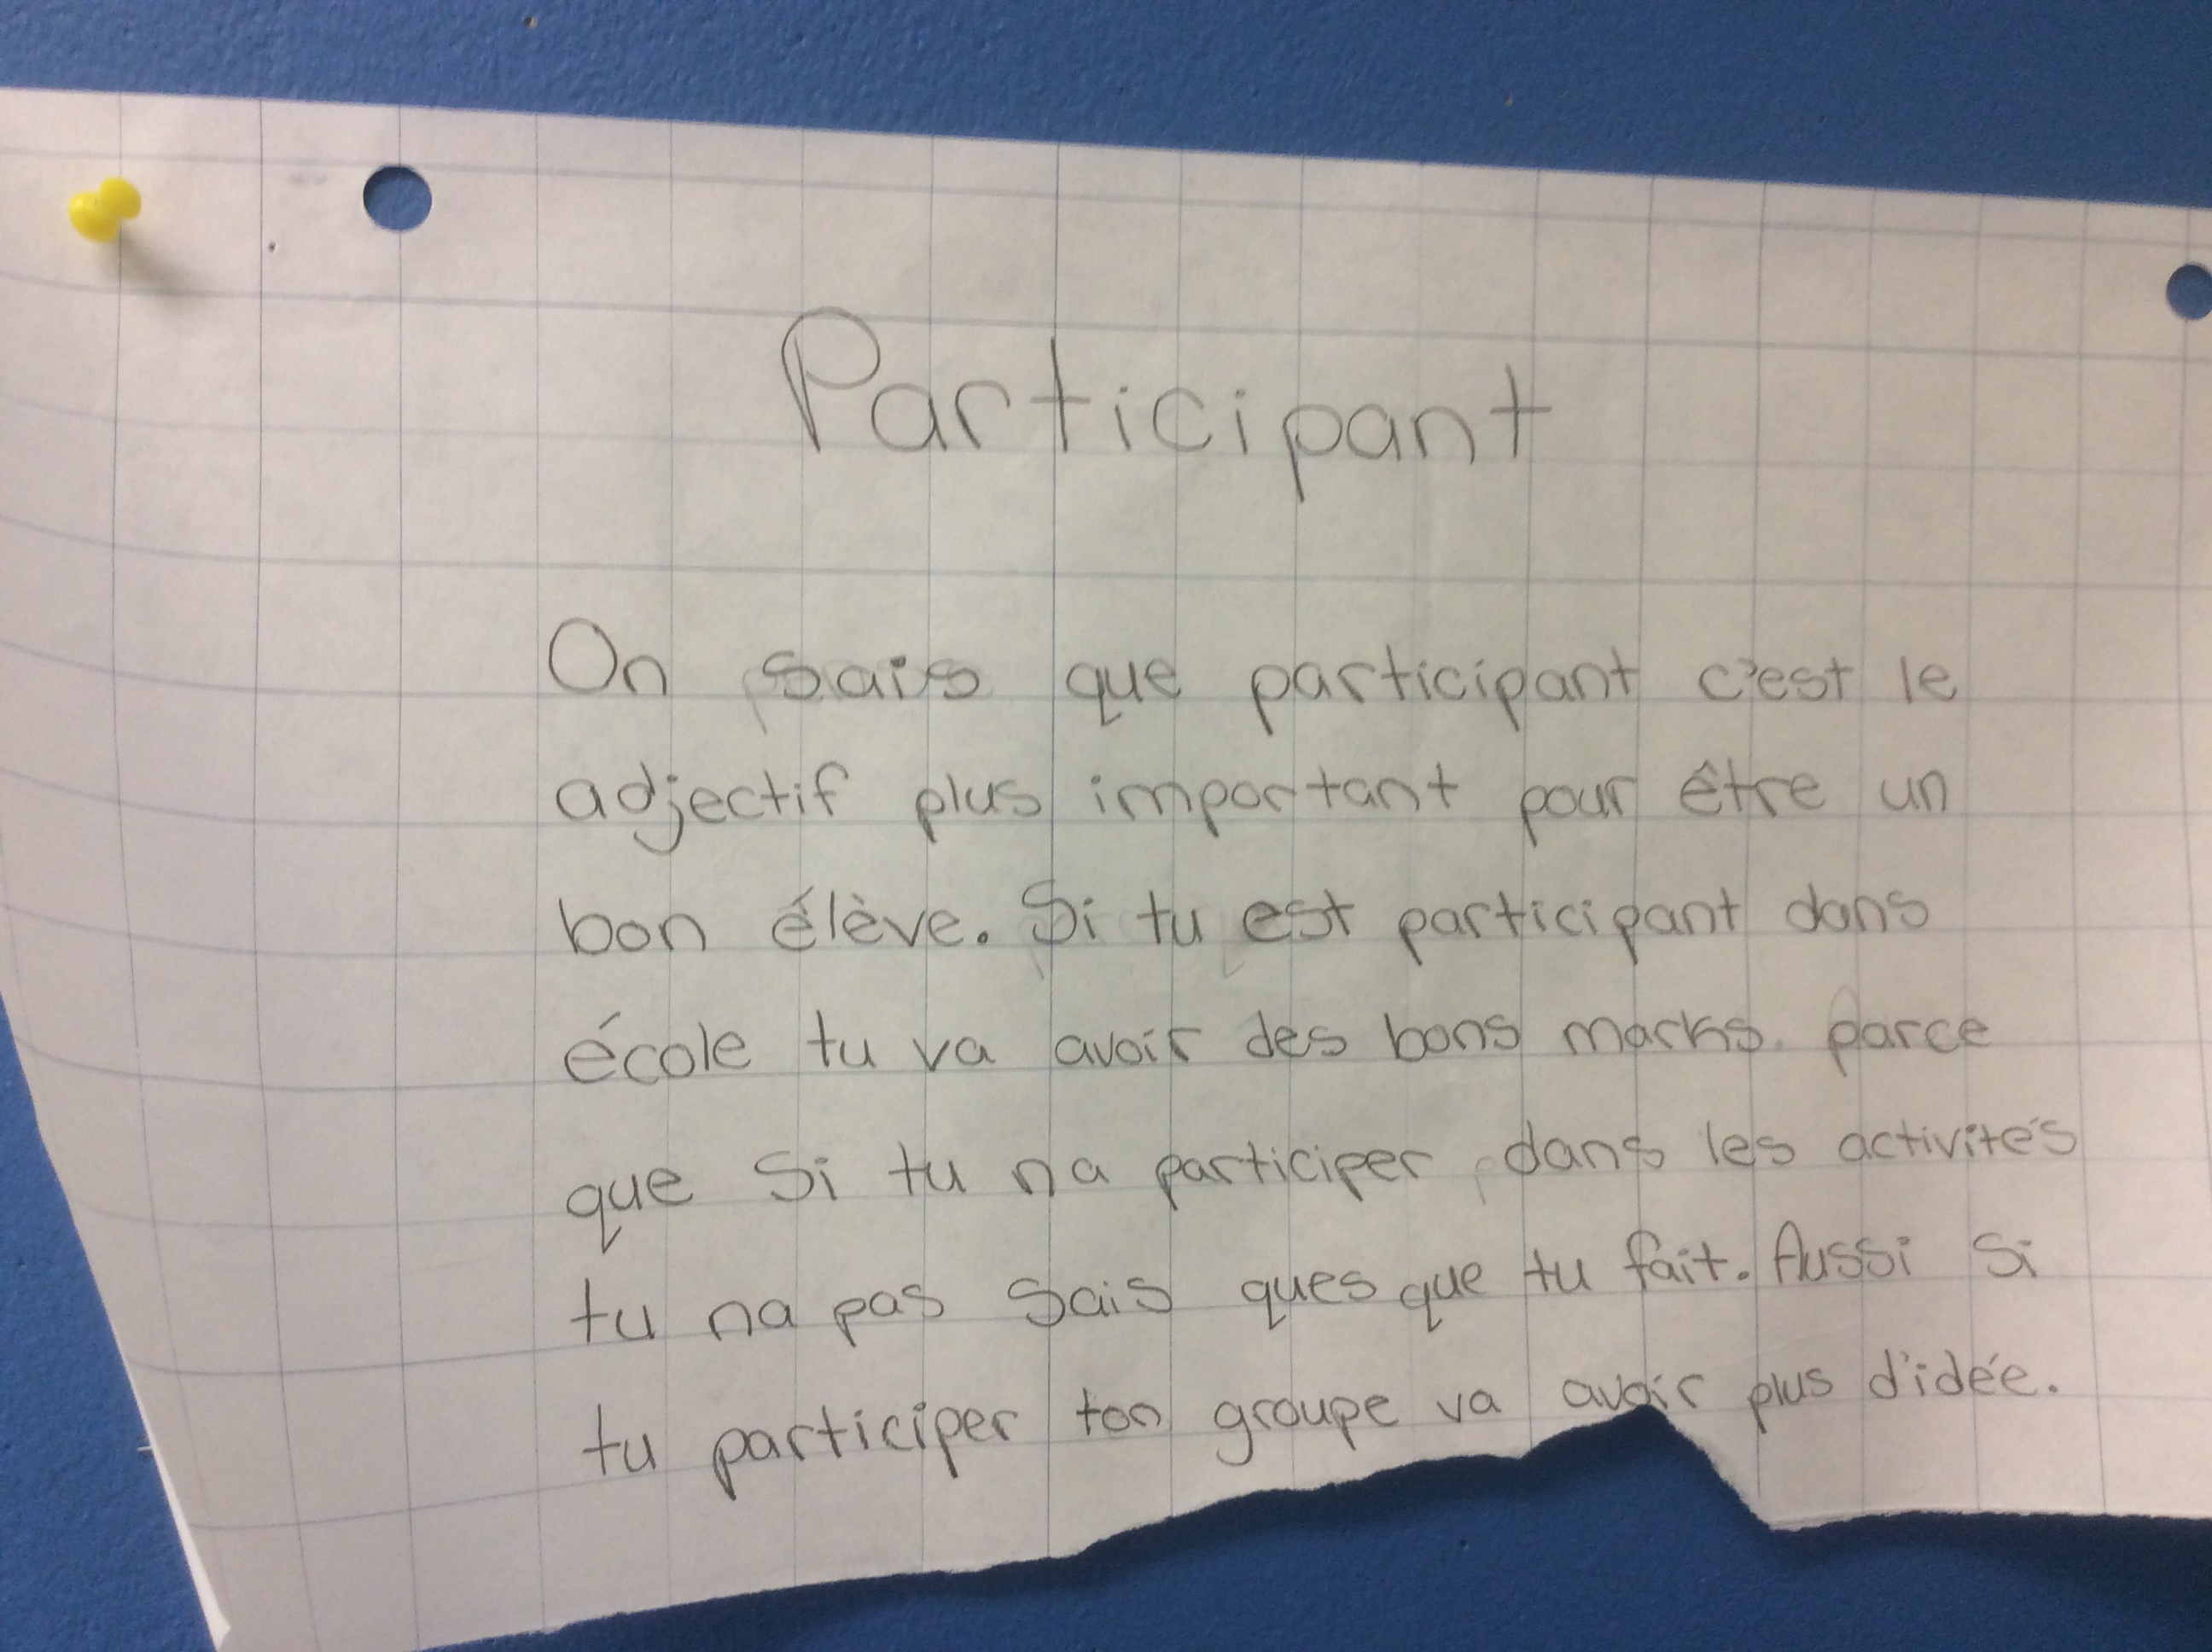 Participant
On sais que participant c'est le
adjectif plus important pour être un
bon élève. Si tu est participant dans
école tu va avoir des bons marks. parce
que si tu na participer dans les activités
tu na pas sais ques que tu fait. Aussi si
tu participer ton groupe va avoir plus d'idée.